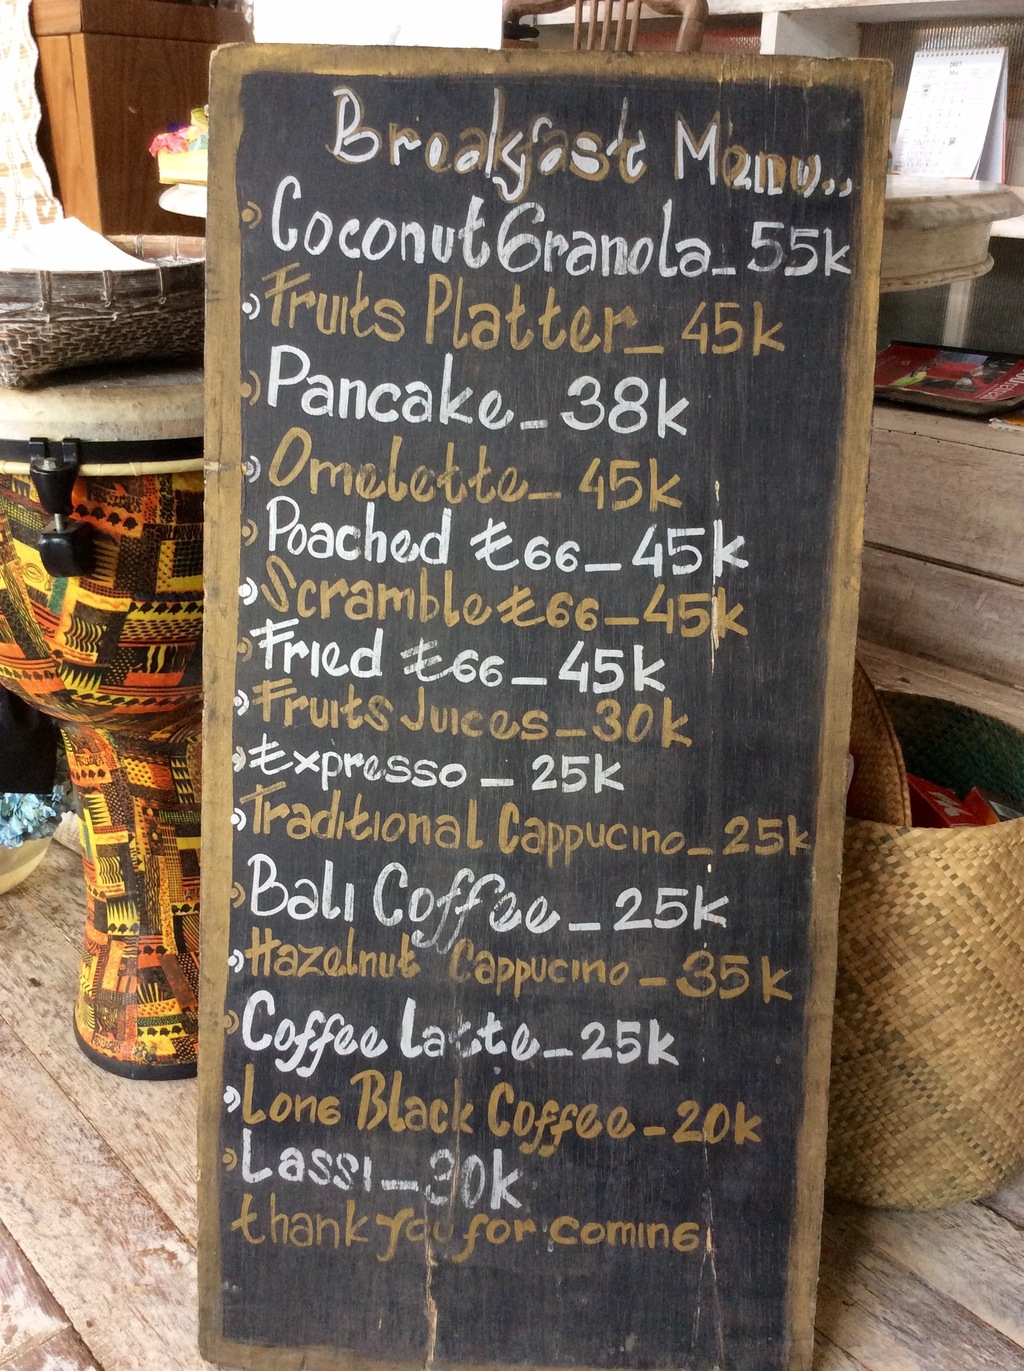 Breakfast Menu..
Coconut Granola_55k
Fruits Platter_45k
Pancake_38k
Omelette_45k
Poached E66_45k
Scramble E66_45k
Fried E66_45k
Fruits Juices_30k
Expresso_25k
Traditional Cappucino_25k
Bali Coffee_25k
Hazelnut Cappucino_35k
Coffee Latte_25k
Long Black Coffee_20k
Lassi_30k
thank you for coming
2017